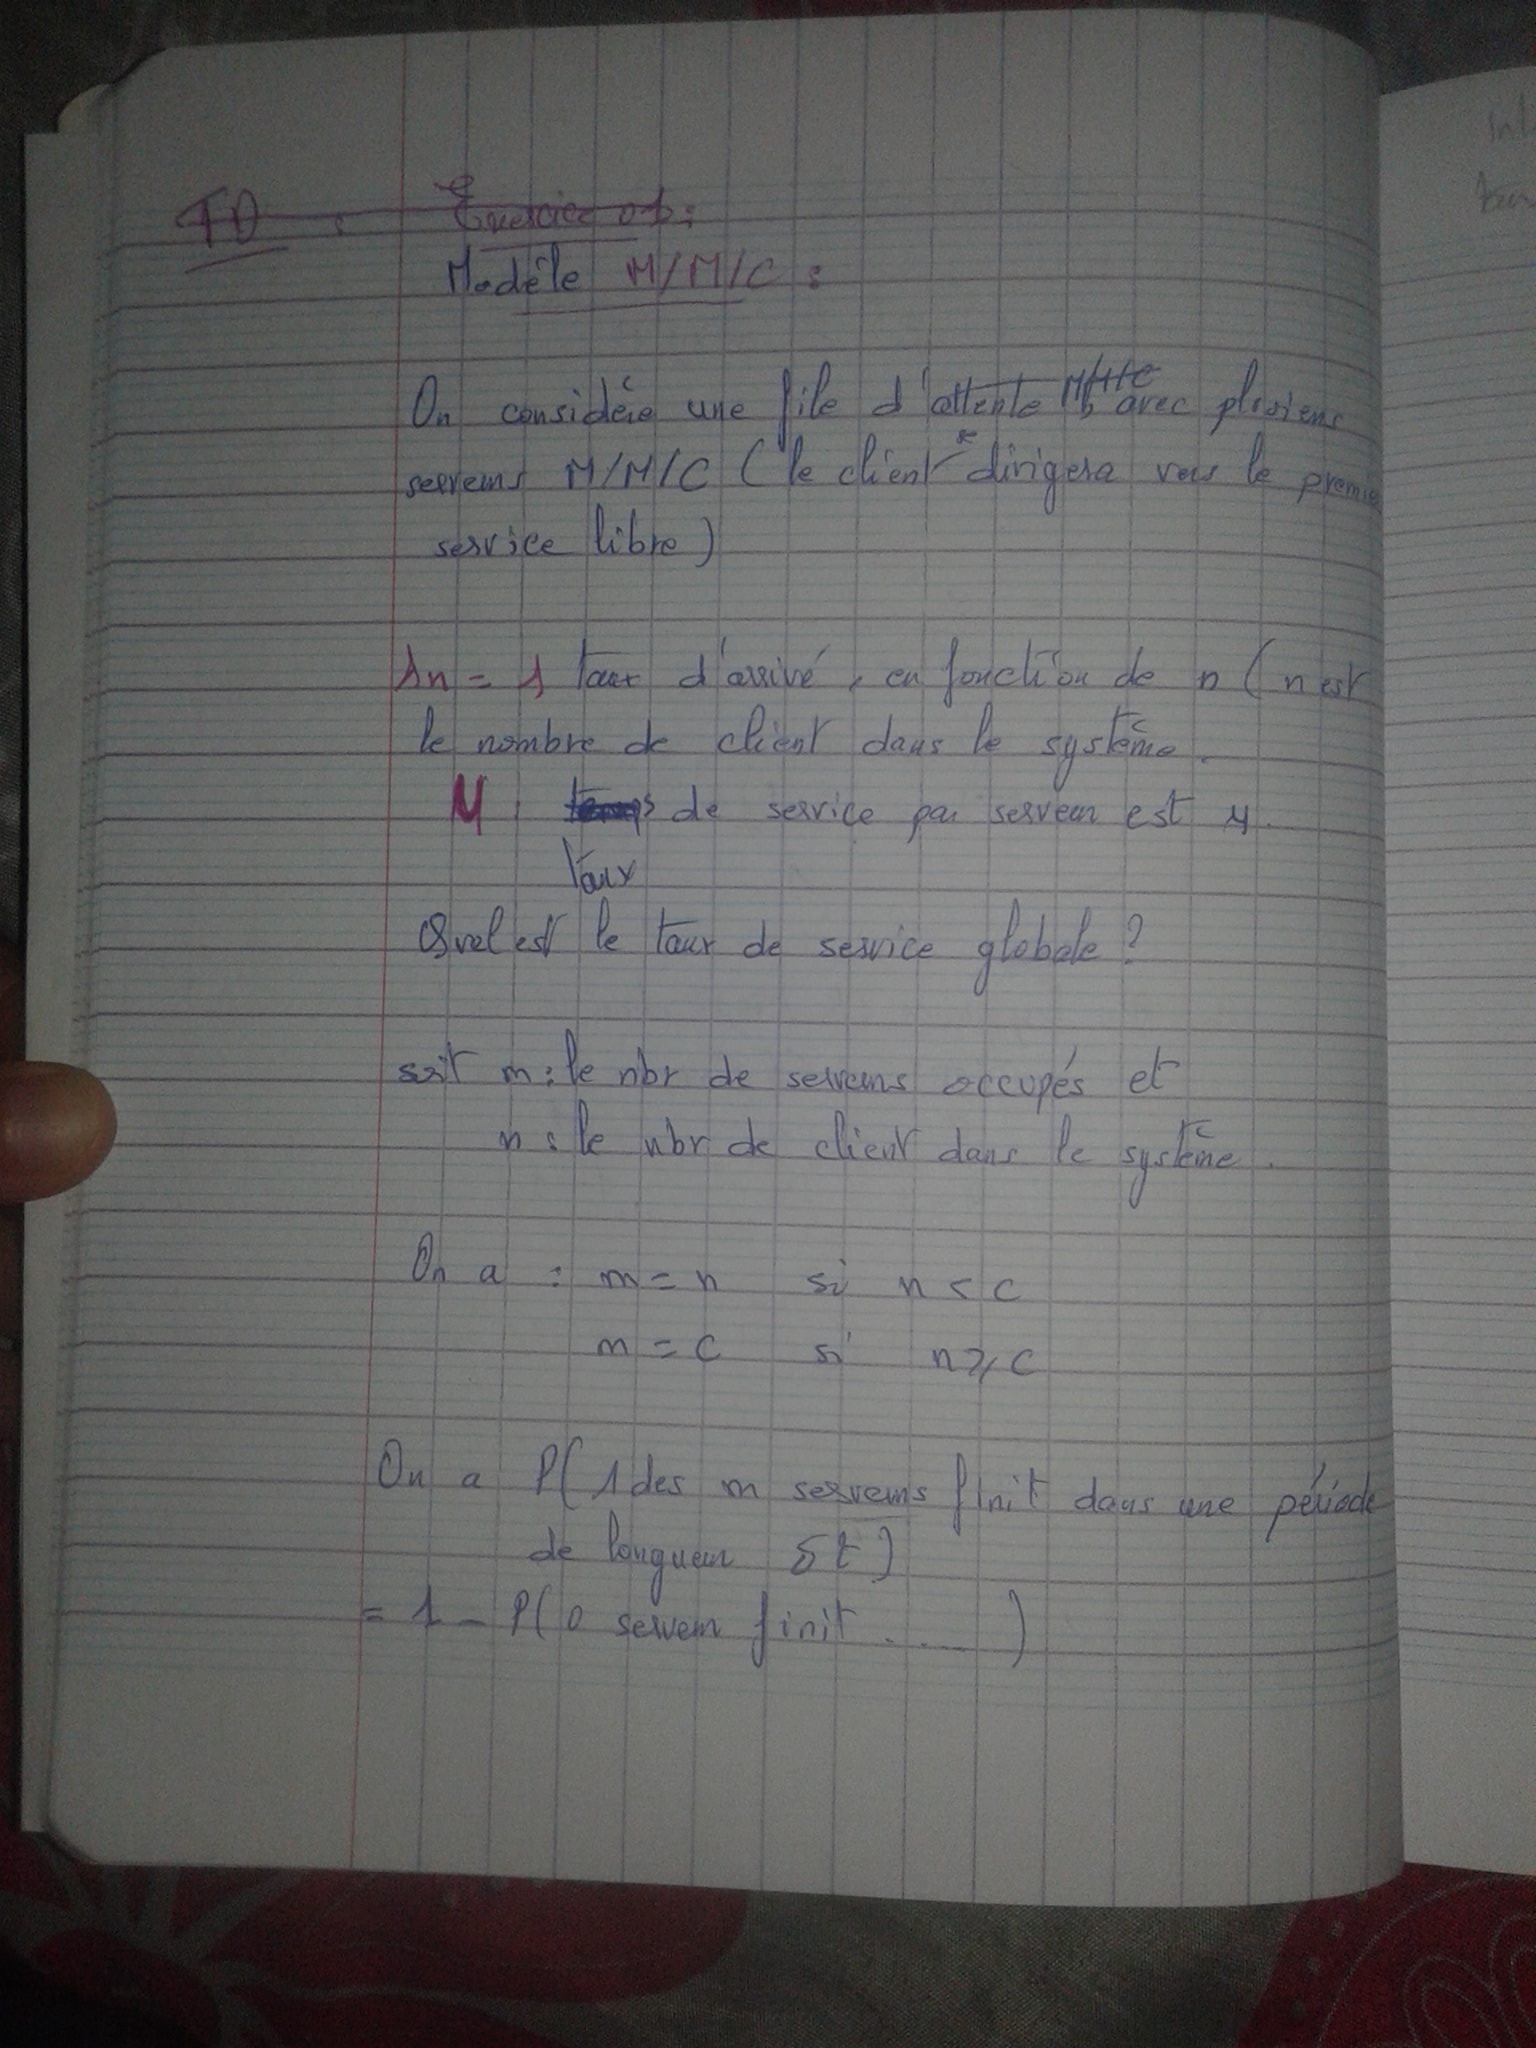 TD : Exercice 01:
Modèle M/M/C :
On considére une file d'attente M/M/C avec plusieurs
serveurs M/M/C ( le client se dirigera vers le premie
service libre )
λn = λ taux d'arrivé, en fonction de n ( n est
le nombre de client dans le système.
μ : temps de service par serveur est μ.
Taux
Quel est le taux de service globale ?
soit m : le nbr de serveurs occupés et
n : le nbr de client dans le système.
On a : m = n si n < c
m = c si n ≥ c
On a P( 1 des m serveurs finit dans une période
de longueur δt )
= 1 - P( 0 serveur finit ..... )